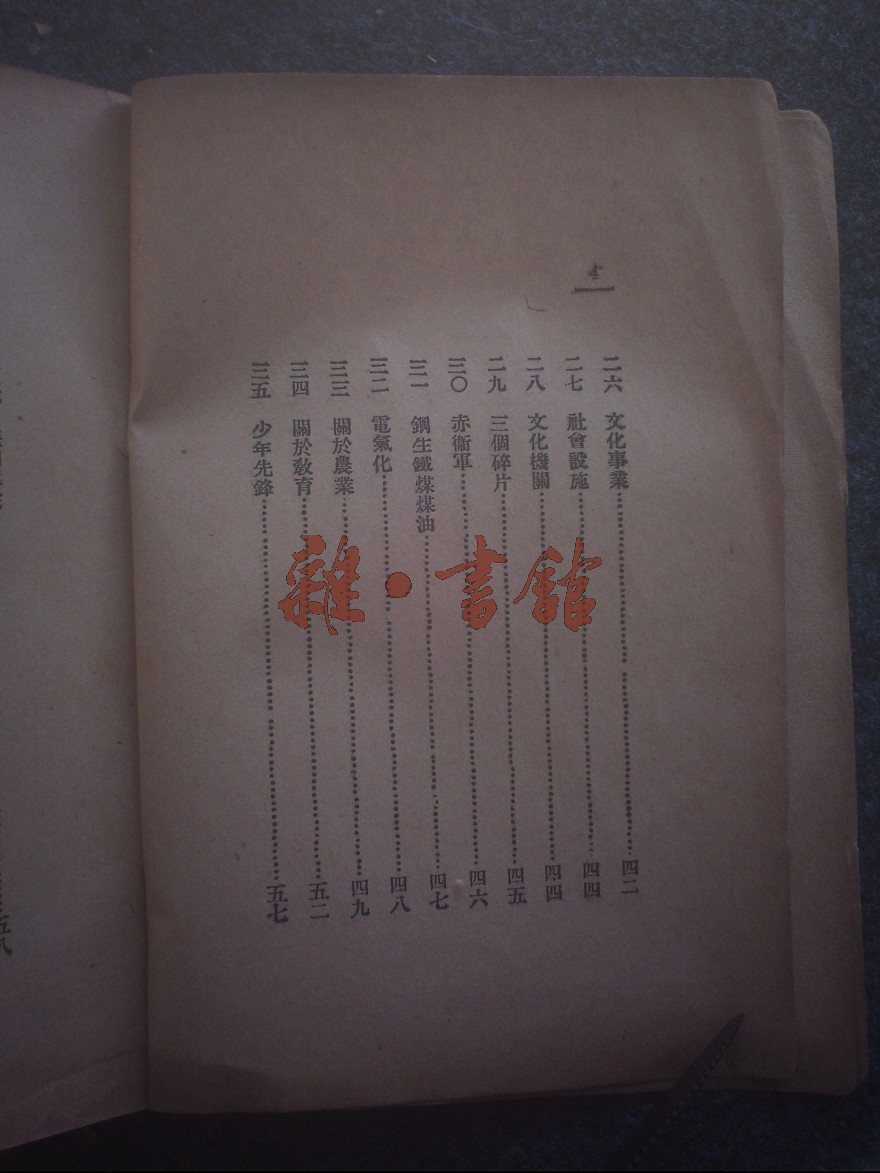 4
二六 文化事業 四二
二七 社會設施 四四
二八 文化機關 四四
二九 三個碎片 四五
三〇 赤衞軍 四六
三一 鋼生鐵煤煤油 四七
三二 電氣化 四八
三三 關於農業 四九
三四 關於敎育 五二
三五 少年先鋒 五七
雜·書館